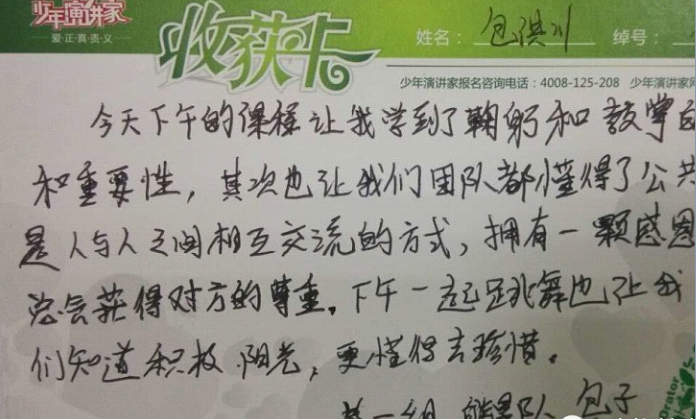 少年演讲家
爱·正·真·责·义
收获卡
姓名： 包洪川 绰号：
少年演讲家报名咨询电话：4008-125-208 少年演讲家网
今天下午的课程让我学到了鞠躬和教掌的
和重要性，其次也让我们团队都懂得了公共
是人与人之间相互交流的方式，拥有一颗感恩
总会获得对方的尊重。下午一起跳舞也让我
们知道积极 阳光，更懂得去珍惜。
第一组 队 包子